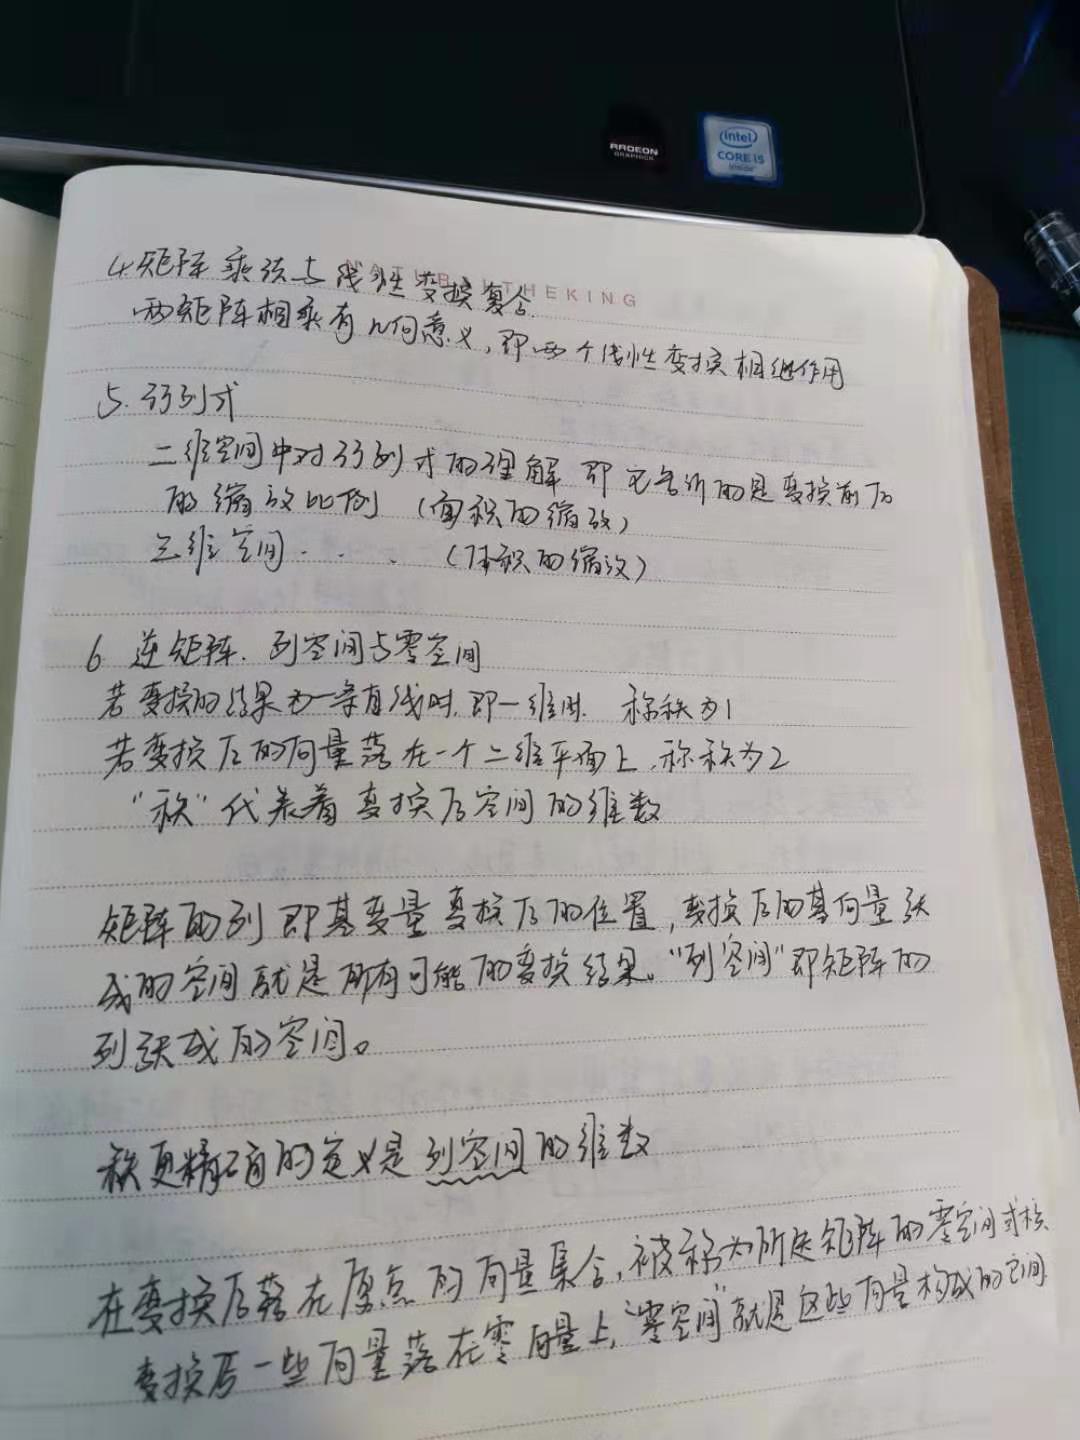 RADEON
GRAPHICS
intel
CORE i5
inside
THEKING
4.矩阵乘法与线性变换复合.
两矩阵相乘有几何意义,即两个线性变换相继作用
5.行列式
二维空间中对行列式的理解 即它告诉的是变换前后
的缩放比例 (面积的缩放)
三维空间 . . . (体积的缩放)
6 逆矩阵.列空间与零空间
若变换的结果为一条直线时.即一维时. 称秩为1
若变换后的向量落在一个二维平面上.称秩为2
“秩”代表着变换后空间的维数
矩阵的列即基变量变换后的位置,变换后的基向量张
成的空间就是所有可能的变换结果。“列空间”即矩阵的
列张成的空间。
秩更精确的定义是列空间的维数
在变换后落在原点的向量集合,被称为所述矩阵的零空间或核.
变换后一些向量落在零向量上,“零空间”就是这些向量构成的空间